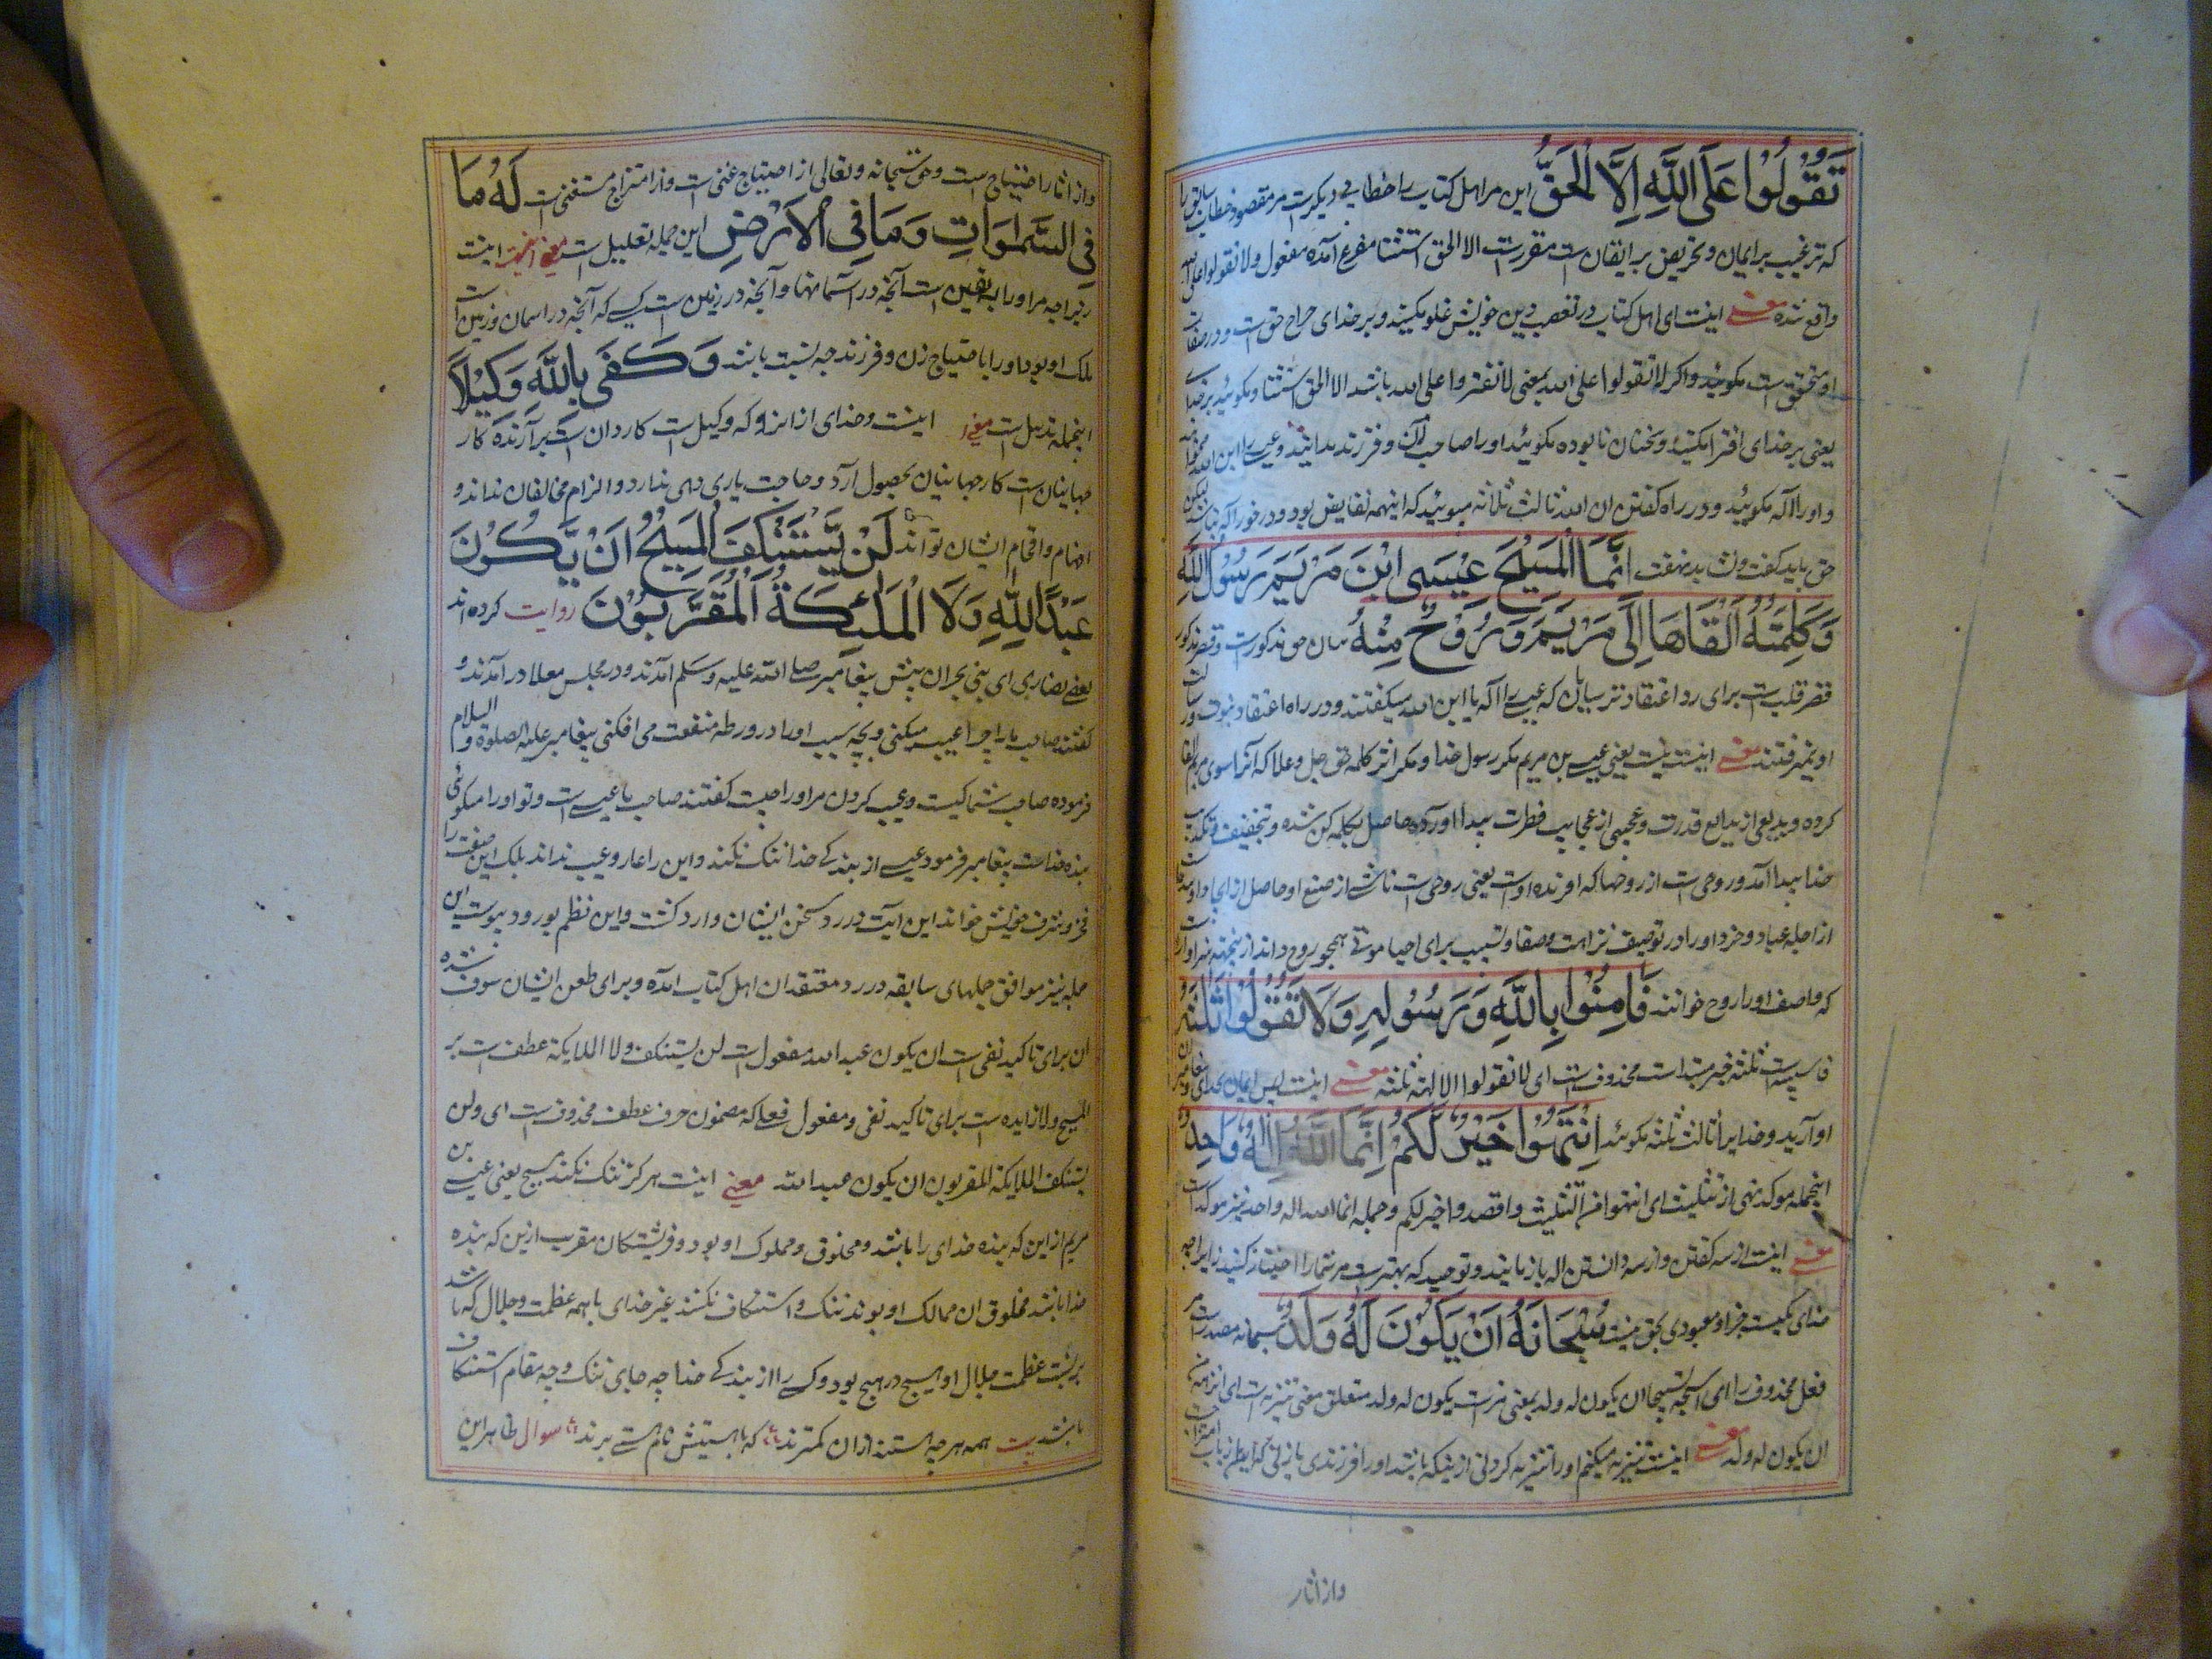 تَقُوْلُوْا عَلَی اللّٰهِ اِلَّا الْحَقَّ این مر اهل کتاب را خطابی دیکرست مر مقصود خطاب سابق را
که ترغیب بر ایمان و تحریض بر ایقان است مقررست الا الحق استثنا مفرغ آمده مفعول ولا تقولوا علی الله
واقع شده معنی اینست ای اهل کتاب در تعصب دین خویش غلو مکنید و بر خدای جز آنچه حق است و در صفات
او متحقق است مکوئید و اکر لا تقولوا علی الله بمعنی لا تفتروا علی الله باشد الا الحق استثنا
یعنی بر خدای افترا مکنید و سخنان نابوده مکوئید او را صاحب زن و فرزند مدانید و عیسی را ابن الله مخوانید
و او را اله مکوئید و در راه کفتن ان الله ثالث ثلثه مپوئید که اینهمه نقایص بود و در خور اله نباشد
حق باید کفت و نشاید نهفت اِنَّمَا الْمَسِیْحُ عِیْسَی ابْنُ مَرْیَمَ رَسُوْلُ اللّٰهِ
وَکَلِمَتُهُ اَلْقَاهَا اِلٰی مَرْیَمَ وَرُوْحٌ مِنْهُ بیان حق مذکورست و قصر مذکور
قصر قلب است برای رد اعتقاد ترسایان که عیسی را اله یا ابن الله میکفتند و در راه اعتقاد نبوت و رسالت
او نمیرفتند معنی اینست نیست یعنی عیسی بن مریم مکر رسول خدا و مکر اثر کلمه حق جل و علا که آنرا سوی مریم القا
کرده و بدیعی از بدایع قدرت و عجیبی از عجایب فطرت پیدا آورده حاصل بکلمه کن شده
خدا پیدا آمد و روحی است از روحها که افریده اوست یعنی روحی است ناشی از صنع او حاصل از ایجاد او
از اجله عباد و خرد او را در توصیف نزاهت و صفا و تسبب برای احیا موتی همچو روح داند ازینجهة سزاوار است
که واصف او را روح خوانند فَاٰمِنُوْا بِاللّٰهِ وَرَسُوْلِهِ وَلَا تَقُوْلُوْا ثَلٰثَةٌ
فا سببیه است ثلثه خبر مبتداست محذوف است ای لا تقولوا الالهة ثلثه معنی اینست پس ایمان بخدای و پیغامبران
او آرید و خدایرا ثالث ثلثه مکوئید اِنْتَهُوْا خَیْرًا لَّکُمْ اِنَّمَا اللّٰهُ اِلٰهٌ وَّاحِدٌ
اینجمله موکد نهی از تثلیث است ای انتهوا من التثلیث و اقصدوا خیرا لکم و جمله انما الله اله واحد نیز موکد است
معنی اینست از سه کفتن و از سه دانستن اله باز مانید و توحید که بهترست مر شما را اختیار کنید زیرا چه
خدای یکیست جز او معبودی بحق نیست سُبْحَانَهُ اَنْ یَکُوْنَ لَهُ وَلَدٌ سبحانه مصدرست مر
فعل محذوف را ای اسبحه تسبیحا ان یکون له ولد بمعنی من ان یکون له ولد متعلق معنی تنزیه است ای انزهه من
ان یکون له ولد معنی اینست تنزیه میکنم او را تنزیه کردنی ازینکه باشد او را فرزندی یا زنی که از اسباب امتزاج
واز اثار
واز اثار احتیاج است وحق سبحانه و تعالی از احتیاج غنی است و از امتزاج مستغنی است لَهُ مَا
فِی السَّمٰوَاتِ وَمَا فِی الْاَرْضِ این جمله تعلیل است معنی اینجهت اینست
زیراچه مر او را به یقین است آنچه در آسمانها و آنچه در زمین است کسی که آنچه در اسمان و زمین است
ملک او بود او را با احتیاج زن و فرزند چه نسبت باشد وَکَفٰی بِاللّٰهِ وَکِیْلًا
اینجمله تذییل است معنی اینست و خدای از انرو که وکیل است کاردان است برآرنده کار
جهانیان است کار جهانیان بحصول آرد و حاجت یاری دهی ندارد و الزام مخالفان نداند و
افهام و افحام ایشان تواند لَنْ یَّسْتَنْکِفَ الْمَسِیْحُ اَنْ یَّکُوْنَ
عَبْدًا لِلّٰهِ وَلَا الْمَلٰئِکَةُ الْمُقَرَّبُوْنَ روایت کرده اند
بعضی نصاری ای بنی نجران پیش پیغامبر صلی الله علیه وسلم آمدند و در مجلس معلا درآمدند و
کفتند صاحب ما را چرا عیب میکنی و بچه سبب او را در ورطه منقصت می افکنی پیغامبر علیه الصلوة والسلام
فرموده صاحب شما کیست و عیب کردن مر او را چیست کفتند صاحب ما عیسی است و تو او را میکوئی
بنده خداست پیغامبر فرمود عیسی از بندکی خدا ننک نکند و این را عار و عیب نداند بلک این صفت را
فخر و شرف خویش خواند این آیت در رد سخن ایشان وارد کشت و این نظم بورود پیوست این
جمله نیز موافق جملهای سابقه در رد معتقدان اهل کتاب امده و برای طعن ایشان سوق شده
ان برای تاکید نفی است ان یکون عبد الله مفعول است لن یستنکف ولا الملایکة عطف است بر
المسیح ولا زایده است برای تاکید نفی و مفعول فعلی که مضمون حرف عطف محذوف است ای ولن
یستنکف الملایکة المقربون ان یکون عبد الله معنی اینست هرکز ننک نکند مسیح یعنی عیسی بن
مریم از این که بنده خدای را باشد و مخلوق و مملوک او بود و فریشتکان مقرب ازین که بنده
خدا باشند مخلوق ان ممالک او بوند ننک و استنکاف نکنند غیر خدای با همه عظمت و جلال که باشد
بر نسبت عظمت جلال او هیچ در هیچ بود و کسی را از بندکی خدا چه جای ننک و چه مقام استنکاف
باشد بیت همه هرچه هستند ازان کمترند که با هستیش نام هستی برند سوال ظاهر این